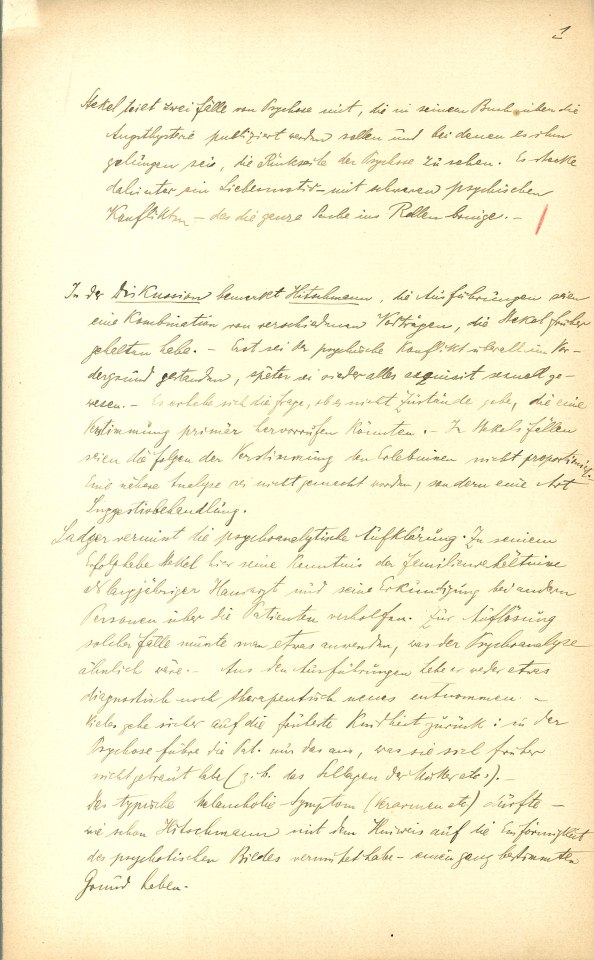 1
Stekel teilt zwei Fälle von Psychose mit, die in seinem Buch über die
Angsthysterie publiziert werden sollen und bei denen es ihm
gelungen sei, die Rückseite der Psychose zu sehen. Es stecke
dahinter ein Liebesmotiv mit schweren psychischen
Konflikten – das die ganze Sache ins Rollen bringe. –
In der Diskussion bemerkt Hitschmann, die Ausführungen seien
eine Kombination von verschiedenen Vorträgen, die Stekel früher
gehalten habe. – Erst sei der psychische Konflikt überall im Vor-
dergrund gestanden, später sei wieder alles exquisit sexuell ge-
wesen. – Es erhebe sich die Frage, ob es nicht Zustände gebe, die eine
Verstimmung primär hervorrufen könnten. – In Stekels Fällen
seien die Folgen der Verstimmung den Erlebnissen nicht proportional.
Eine nähere Analyse sei nicht gemacht worden, sondern eine Art
Suggestivbehandlung.
Sadger vermisst die psychoanalytische Aufklärung. Zu seinem
Erfolg habe Stekel hier seine Kenntnis der Familienverhältnisse
als langjähriger Hausarzt und seine Erkundigung bei andern
Personen über die Patienten verholfen. Zur Auflösung
solcher Fälle müsste man etwas anwenden, was der Psychoanalyse
ähnlich wäre. – Aus den Ausführungen habe er weder etwas
diagnostisch noch therapeutisch neues entnommen. –
Vieles gehe sicher auf die früheste Kindheit zurück: in der
Psychose führe die Pat. nur das aus, was sie sich früher
nicht getraut habe (z. b. das Schlagen der Mutter etc.). –
Das typische Melancholie-Symptom (Grimassen etc) dürfte –
wie schon Hitschmann mit dem Hinweis auf die Einförmigkeit
des psychotischen Bildes vermutet habe – einen ganz bestimmten
Grund haben.